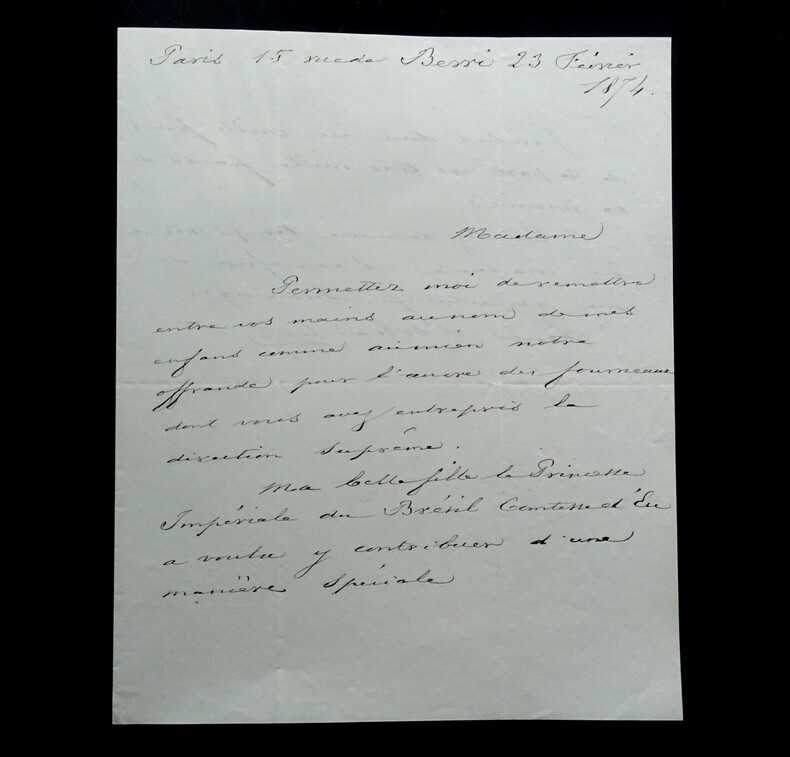 Paris 15 rue de Berri 23 Février
1874.
Madame
Permettez moi de remettre
entre vos mains au nom de mes
enfans comme au mien notre
offrande pour l'œuvre des fourneaux
dont vous avez entrepris la
direction Suprême.
Ma belle fille la Princesse
Impériale du Brésil Comtesse d'Eu
a voulu y contribuer d'une
manière Spéciale